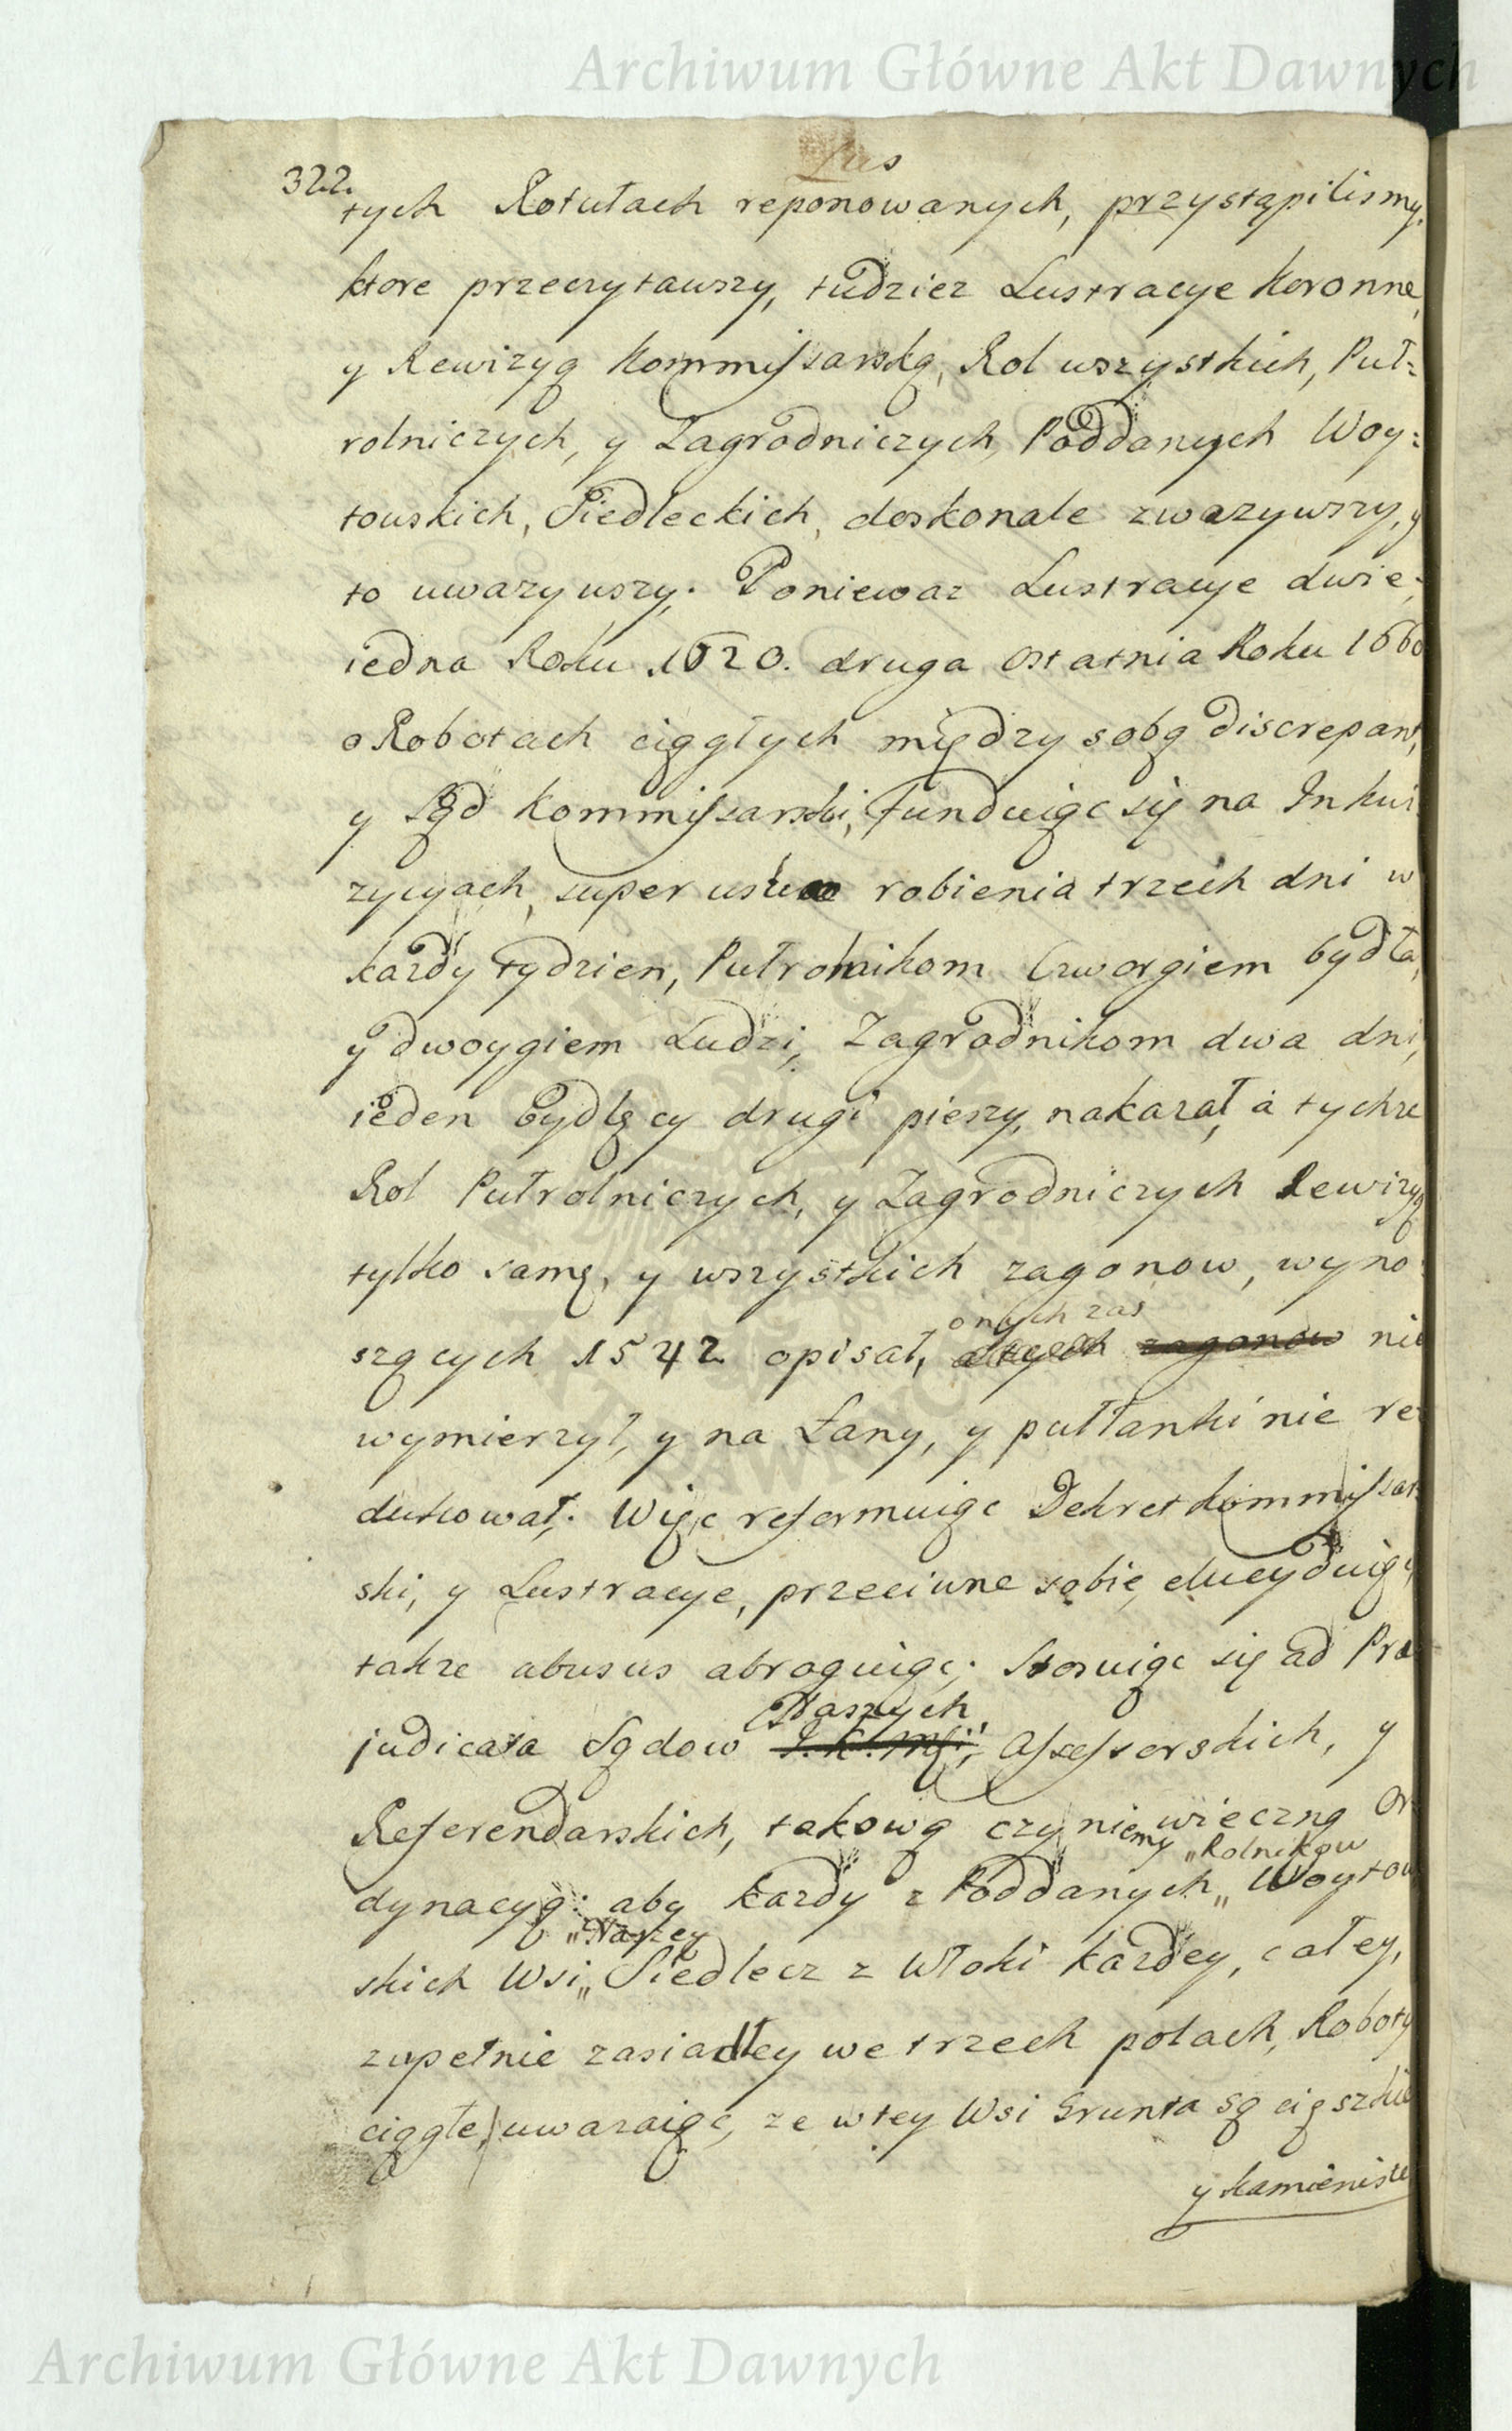 Archiwum Główne Akt Dawnych
322.
tych Rotułach reponowanych, przystąpilismy.
ktore przeczytawszy, tudziez Lustracye Koronne,
y Rewizyą Kommissarską, Rol wszystkich, Puł=
rolniczych, y Zagrodniczych, Poddanych Woy=
towskich, Siedleckich, doskonale zwazywszy, y
to uwazywszy. Poniewaz Lustracye dwie,
iedna Roku 1620. druga ostatnia Roku 1660
o Robotach ciągłych między sobą discrepant,
y Sąd Kommissarski, funduiąc się na Inkwi
zycyach, super usu robienia trzech dni w
kazdy tydzien, Pułrolnikom Czworgiem bydła,
y dwoygiem Ludzi, Zagrodnikom dwa dni,
ieden bydlęcy drugi pieszy, nakazał, a tychze
Rol Pułrolniczych, y Zagrodniczych Rewizyą
tylko samę, y wszystkich zagonow, wyno
onych zas
szących 1542 opisał, a tych zagonow nie
wymierzył, y na Łany, y pułłanki nie re
dukował. Więc reformuiąc Dekret Kommissar
ski, y Lustracye, przeciwne sobie, elucyduiąc,
takze abusus abroguiąc. Stosuiąc się ad Præ
Naszych
judicata Sądow J. K. Msci, Assessorskich, y
Referendarskich, takową czyniemy wieczną Or
"Rolnikow
dynacyą: aby kazdy z Poddanych" Woytow
"Naszey
skich Wsi" Siedlecz z Włoki kazdey, całey,
zupełnie zasiadłey we trzech polach, Roboty
ciągłe, uwazaiąc, ze w tey Wsi Grunta są cięszkie
y kamieniste
Archiwum Główne Akt Dawnych